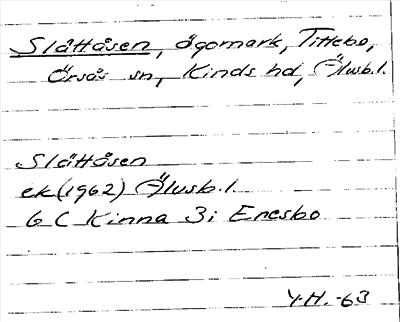 Slåttåsen, ägomark, Tittebo,
Örsås sn, Kinds hd, Älvsb.l.
Slåttåsen
ek (1962) Älvsb.l
6 C Kinna 3i Enesbo
Y.H. -63